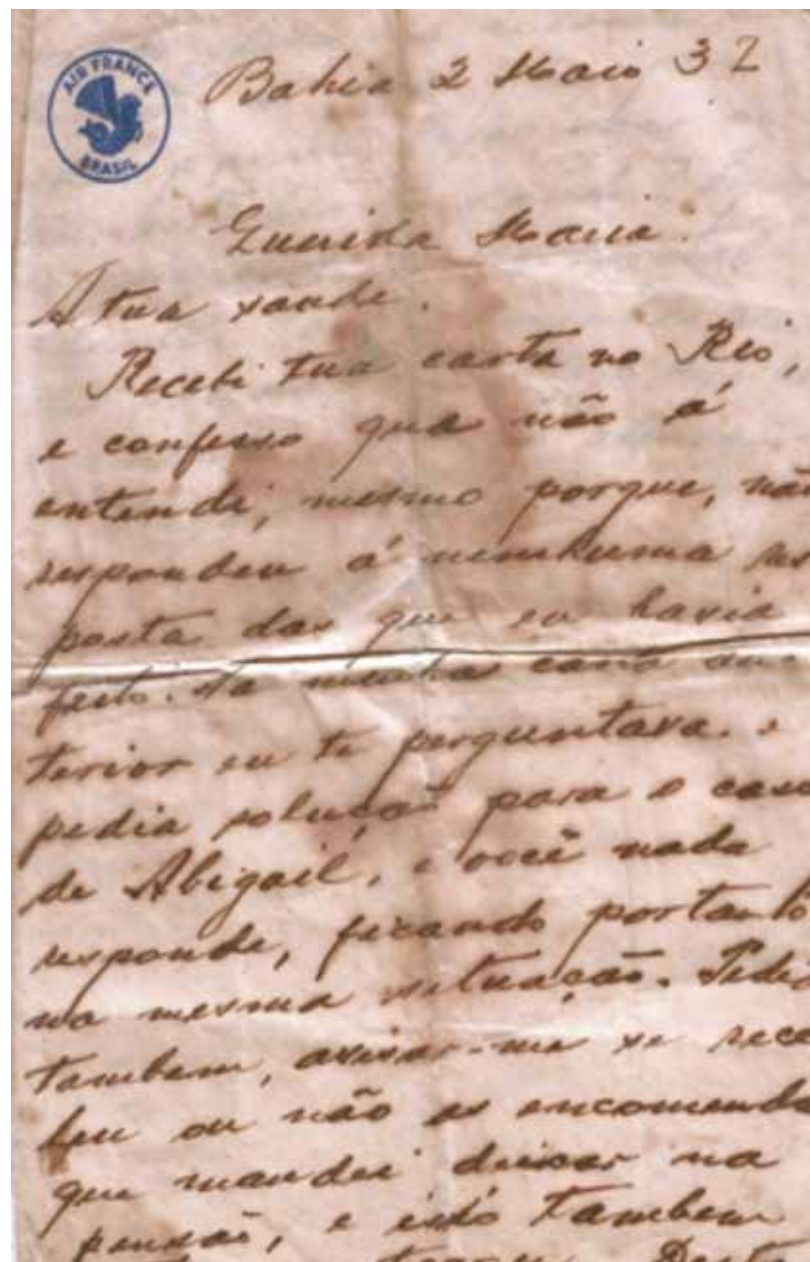 AIR FRANCE
BRASIL
Bahia 2 Maio 37
Querida Maria.
A tua saude.
Recebi tua carta no Rio,
e confesso que não á
entendi, mesmo porque, não
respondeu á nenhuma res
posta das que eu havia
feito. Na minha carta an-
terior eu te perguntava e
pedia solução para o caso
de Abigail, e você nada
responde, ficando portanto
na mesma situação. Pedia
tambem, avisar-me se rece
beu ou não as encomendas
que mandei deixar na
pensão, e isto tambem